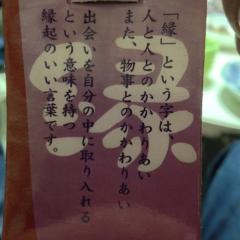 「縁」という字は、
人と人とのかかわりあい
また、物事とのかかわりあい
出会いを自分の中に取り入れる
という意味を持つ
縁起のいい言葉です。
縁